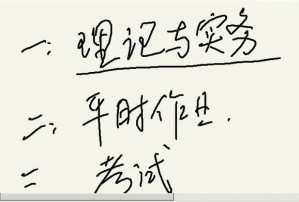 一：理记与实务
二：平时作业.
三 考试